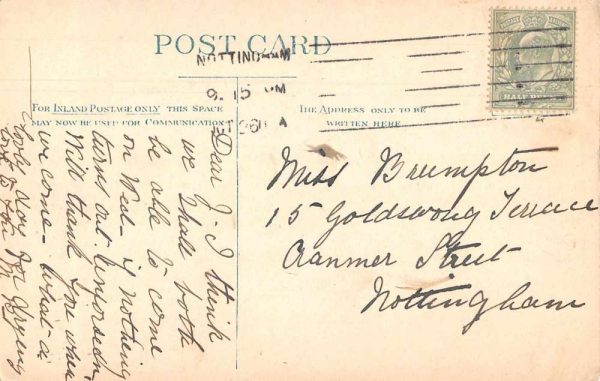 POST CARD
NOTTINGHAM
9. 15 PM
FOR INLAND POSTAGE ONLY THIS SPACE
MAY NOW BE USED FOR COMMUNICATION
THE ADDRESS ONLY TO BE
WRITTEN HERE
HALF PENNY
Dear J- I think
we shall both
be able to come
on Wed- if nothing
turns out.
Will thank you when
we come- What a
lovely day for
love to you
Miss Brumpton
15 Goldswong Terrace
Cranmer Street
Nottingham